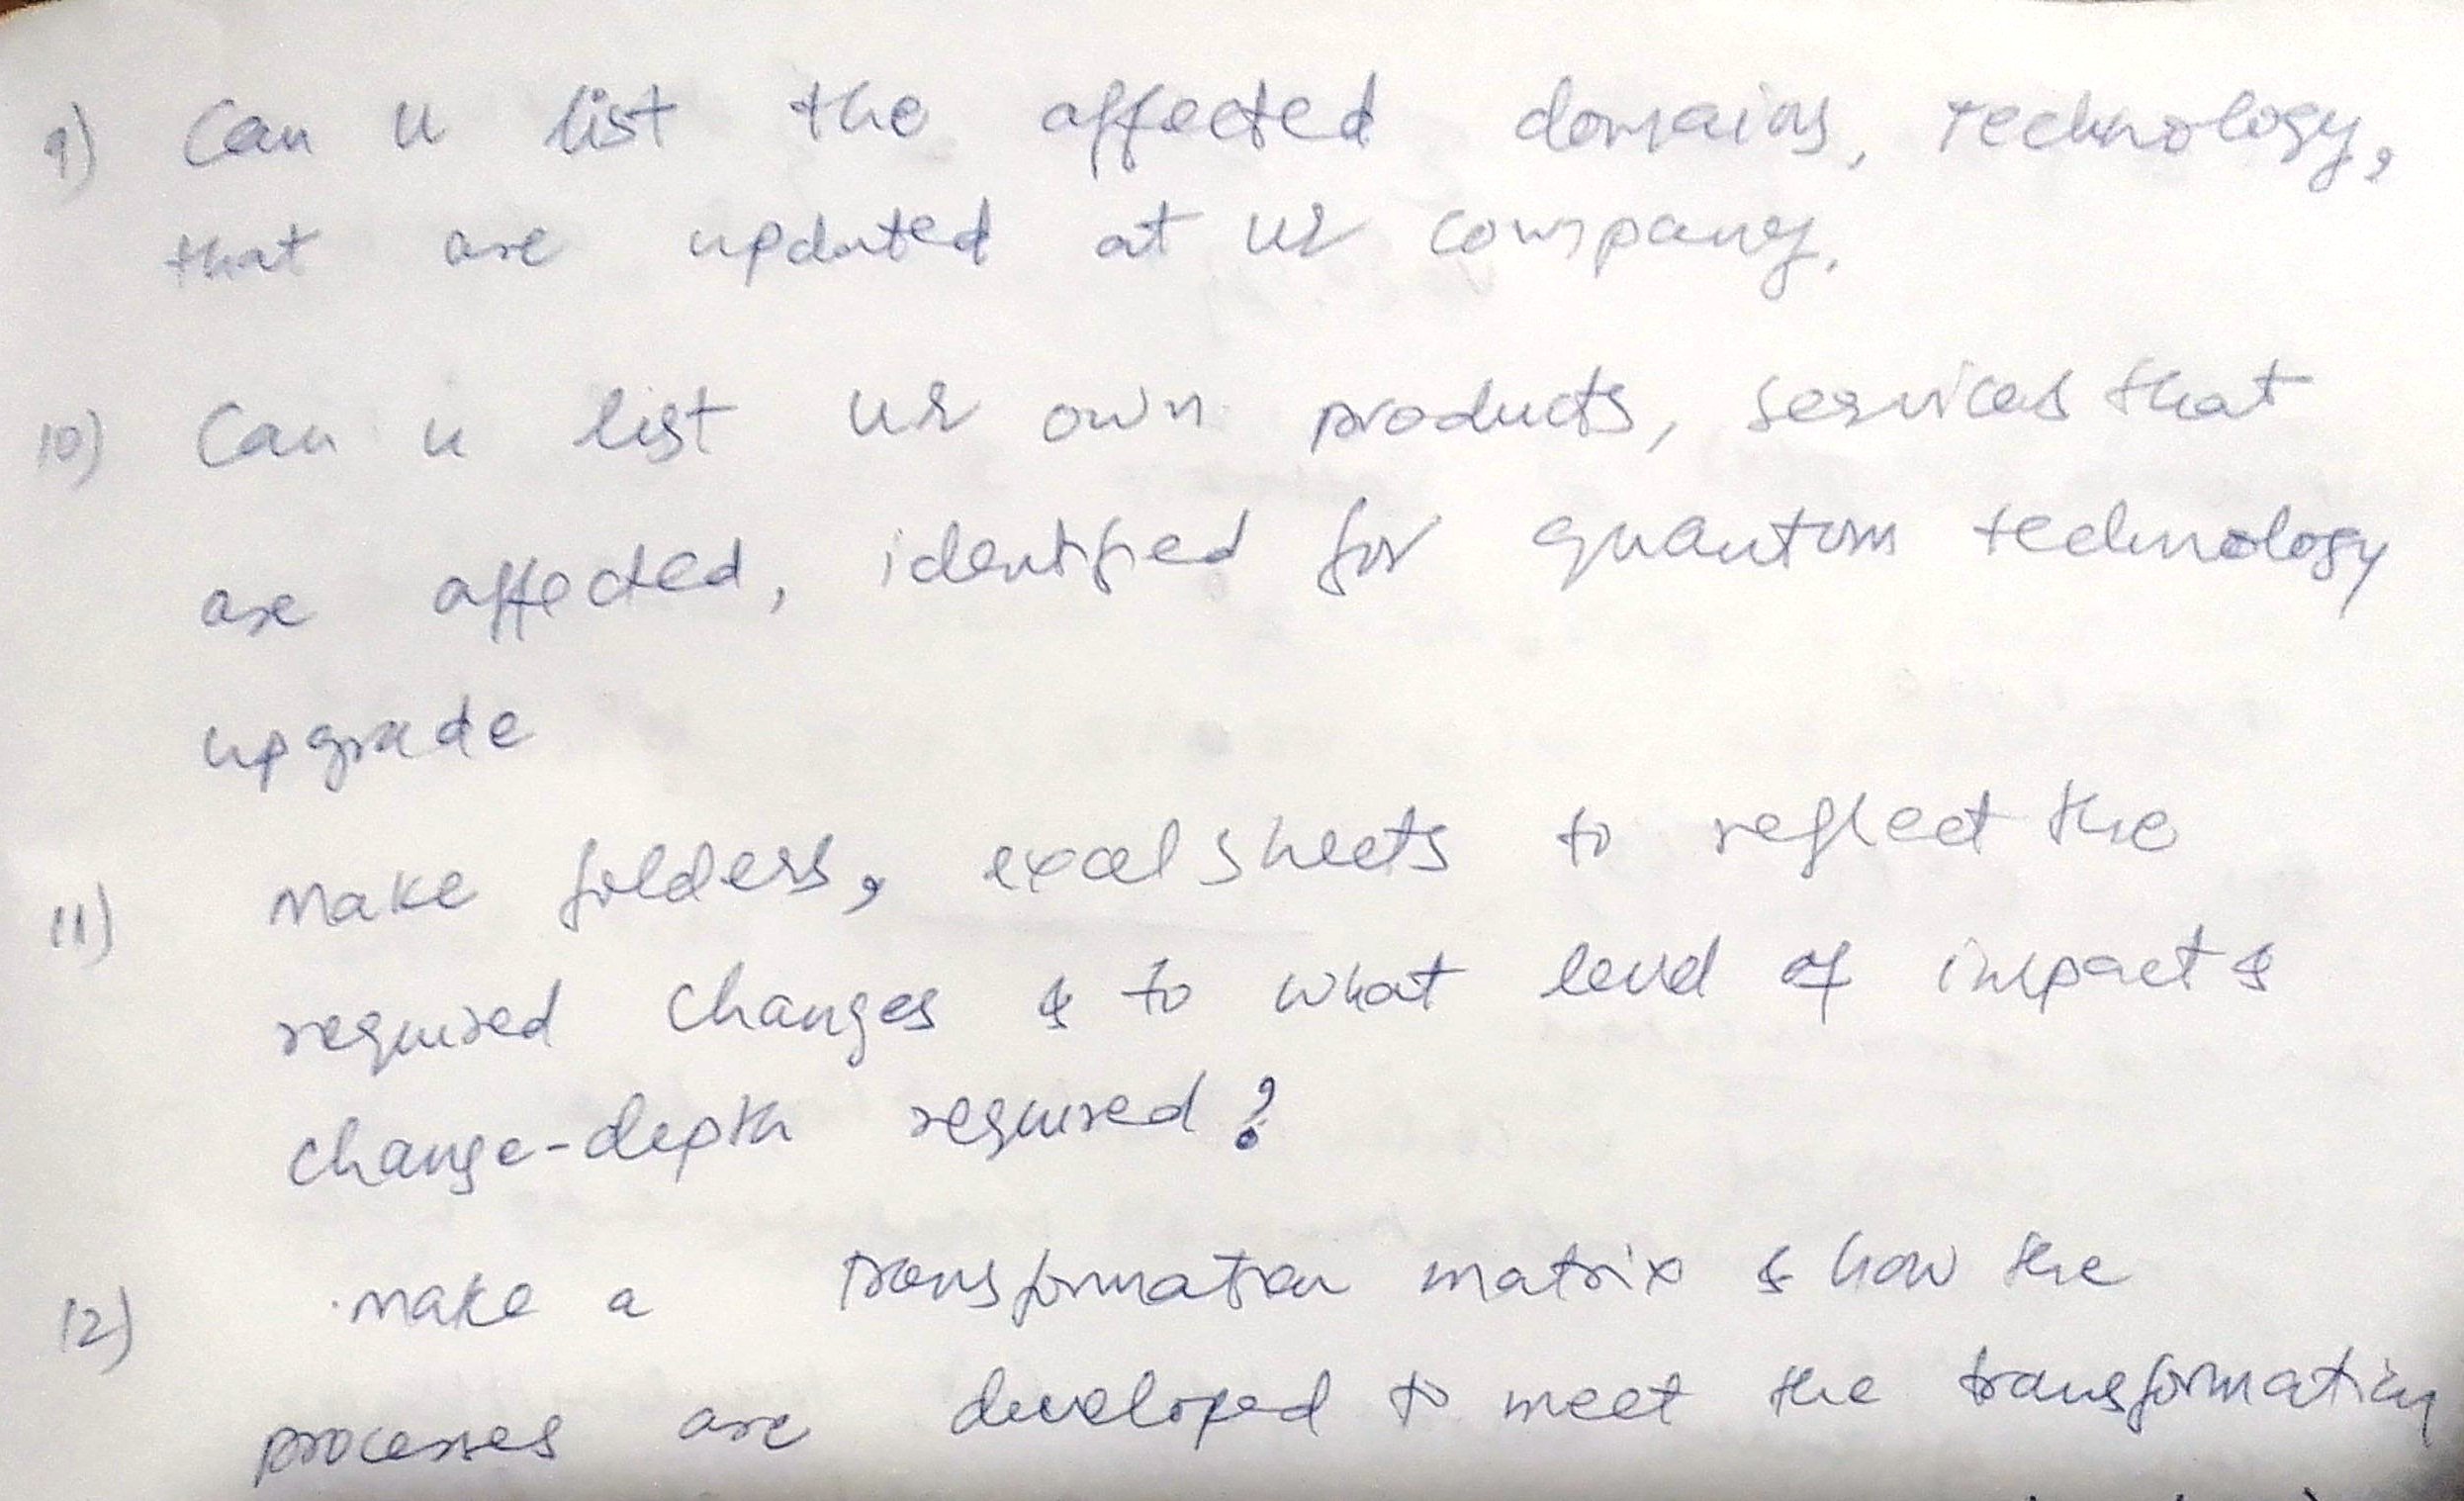 9) Can u list the affected domains, technology,
that are updated at ur company.
10) Can u list ur own products, services that
are affected, identified for quantum technology
upgrade
11) make folders, excel sheets to reflect the
required changes & to what level of impact &
change-depth required?
12) make a transformation matrix & how the
processes are developed to meet the transformation